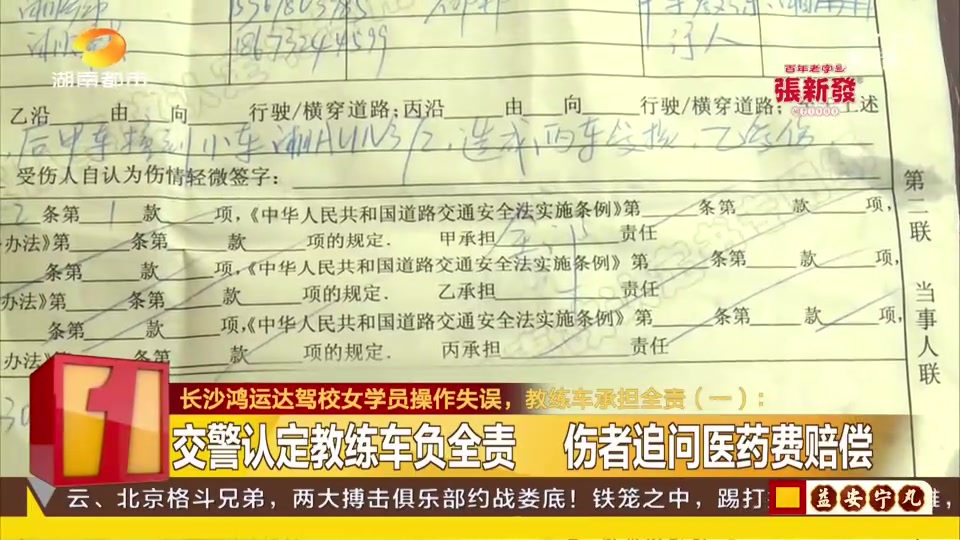 18673244599
行人
湖南都市
百年老字号
張新發
乙沿____由____向____行驶/横穿道路;丙沿____由____向____行驶/横穿道路; 上述
后甲车撞到小车湘A 造成两车受损,乙受伤.
受伤人自认为伤情轻微签字:
2条第1款____项,《中华人民共和国道路交通安全法实施条例》第____条第____款____项,
办法》第____条第____款____项的规定. 甲承担全部责任
条第____款____项,《中华人民共和国道路交通安全法实施条例》第____条第____款____项,
办法》第____条第____款____项的规定. 乙承担____责任
条第____款____项,《中华人民共和国道路交通安全法实施条例》第____条第____款____项,
办法》第____条第____款____项的规定. 丙承担____责任
第二联 当事人联
长沙鸿运达驾校女学员操作失误,教练车承担全责(一):
1
交警认定教练车负全责 伤者追问医药费赔偿
云、北京格斗兄弟,两大搏击俱乐部约战娄底!铁笼之中,踢打
益安宁丸